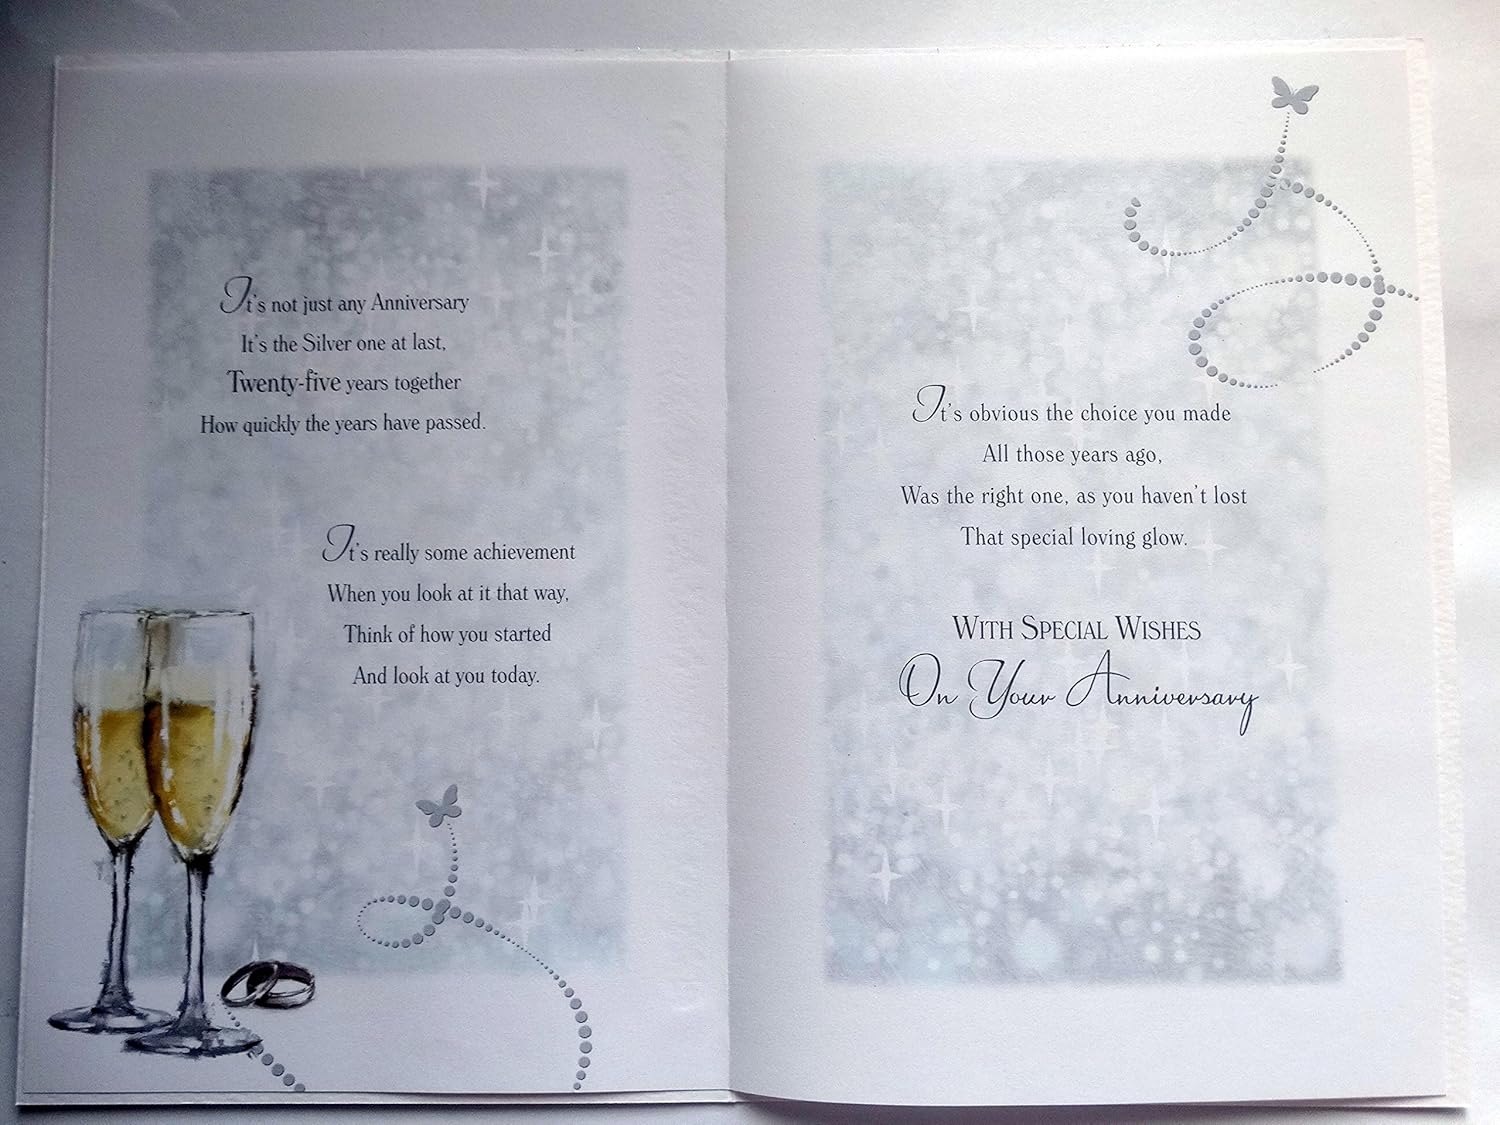 It's not just any Anniversary
It's the Silver one at last,
Twenty-five years together
How quickly the years have passed.
It's really some achievement
When you look at it that way,
Think of how you started
And look at you today.
It's obvious the choice you made
All those years ago,
Was the right one, as you haven't lost
That special loving glow.
WITH SPECIAL WISHES
On Your Anniversary